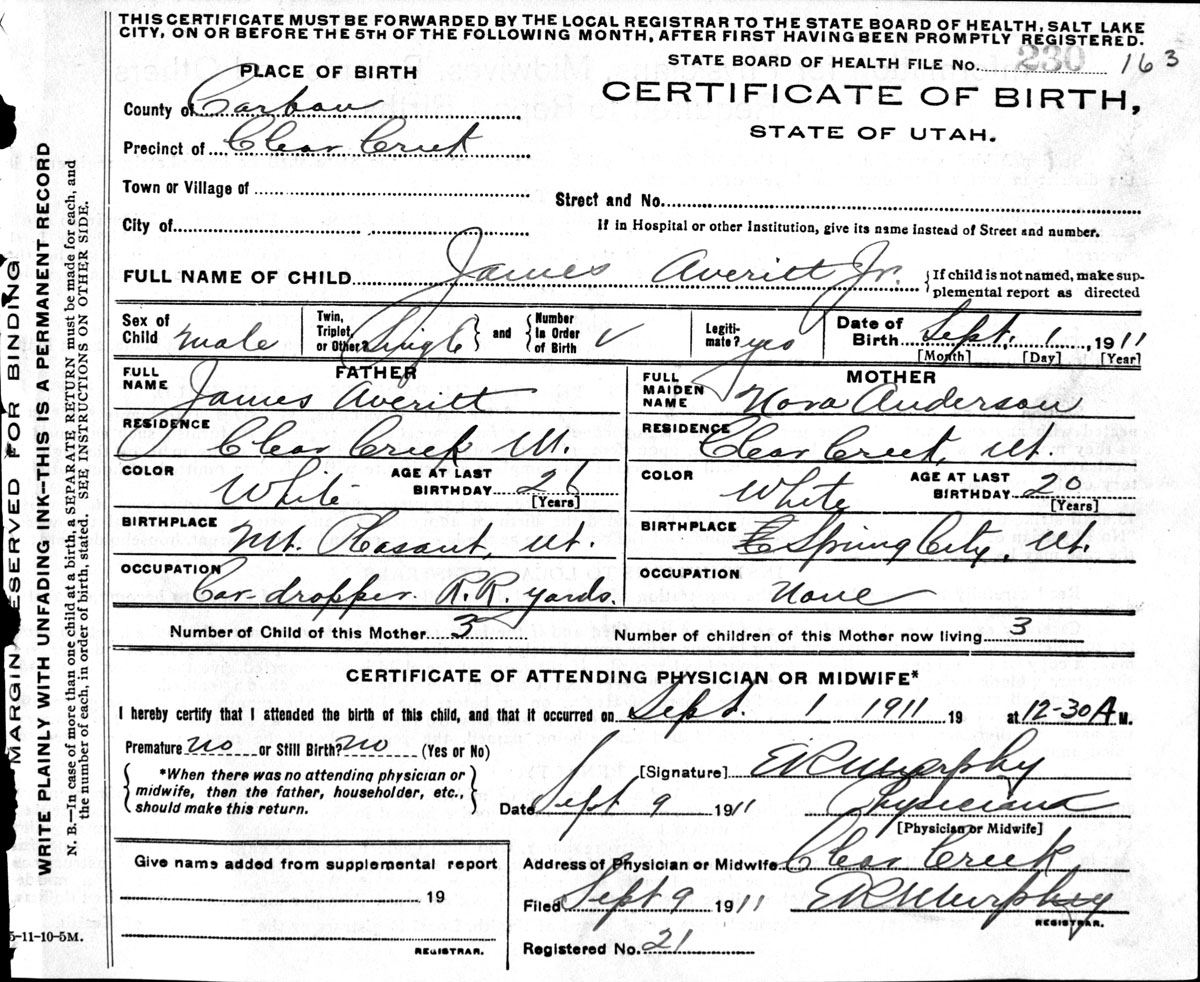 THIS CERTIFICATE MUST BE FORWARDED BY THE LOCAL REGISTRAR TO THE STATE BOARD OF HEALTH, SALT LAKE
CITY, ON OR BEFORE THE 5TH OF THE FOLLOWING MONTH, AFTER FIRST HAVING BEEN PROMPTLY REGISTERED.
STATE BOARD OF HEALTH FILE No. 230 163
CERTIFICATE OF BIRTH,
STATE OF UTAH.
PLACE OF BIRTH
County of Carbon
Precinct of Clear Creek
Town or Village of
Street and No.
City of
If in Hospital or other Institution, give its name instead of Street and number.
FULL NAME OF CHILD James Averitt Jr.
{If child is not named, make sup-
plemental report as directed
Sex of Child male
Twin, Triplet, or Other? Single } and { Number in Order of Birth V
Legiti-mate? yes
Date of Birth Sept. 1, 1911
[Month] [Day] [Year]
FATHER
FULL NAME James Averitt
RESIDENCE Clear Creek Ut.
COLOR White AGE AT LAST BIRTHDAY 26 [Years]
BIRTHPLACE Mt. Pleasant, Ut.
OCCUPATION Car dropper R.R yards.
MOTHER
FULL MAIDEN NAME Nora Anderson
RESIDENCE Clear Creek, Ut.
COLOR White AGE AT LAST BIRTHDAY 20 [Years]
BIRTHPLACE Spring City, Ut.
OCCUPATION None
Number of Child of this Mother 3 Number of children of this Mother now living 3
CERTIFICATE OF ATTENDING PHYSICIAN OR MIDWIFE*
I hereby certify that I attended the birth of this child, and that it occurred on Sept. 1 1911 19 at 12-30 A M.
Premature no or Still Birth? no (Yes or No)
{ *When there was no attending physician or
midwife, then the father, householder, etc.,
should make this return. }
[Signature] E R Murphy
Date Sept 9 1911 Physician
[Physician or Midwife]
Give name added from supplemental report
19
REGISTRAR.
Address of Physician or Midwife Clear Creek
Filed Sept 9 1911 E R Murphy
REGISTRAR.
Registered No. 21
5-11-10-5M.
MARGIN RESERVED FOR BINDING
WRITE PLAINLY WITH UNFADING INK—THIS IS A PERMANENT RECORD
N. B.—In case of more than one child at a birth, SEPARATE RETURN must be made for each, and
the number of each, in order of birth, stated. SEE INSTRUCTIONS ON OTHER SIDE.